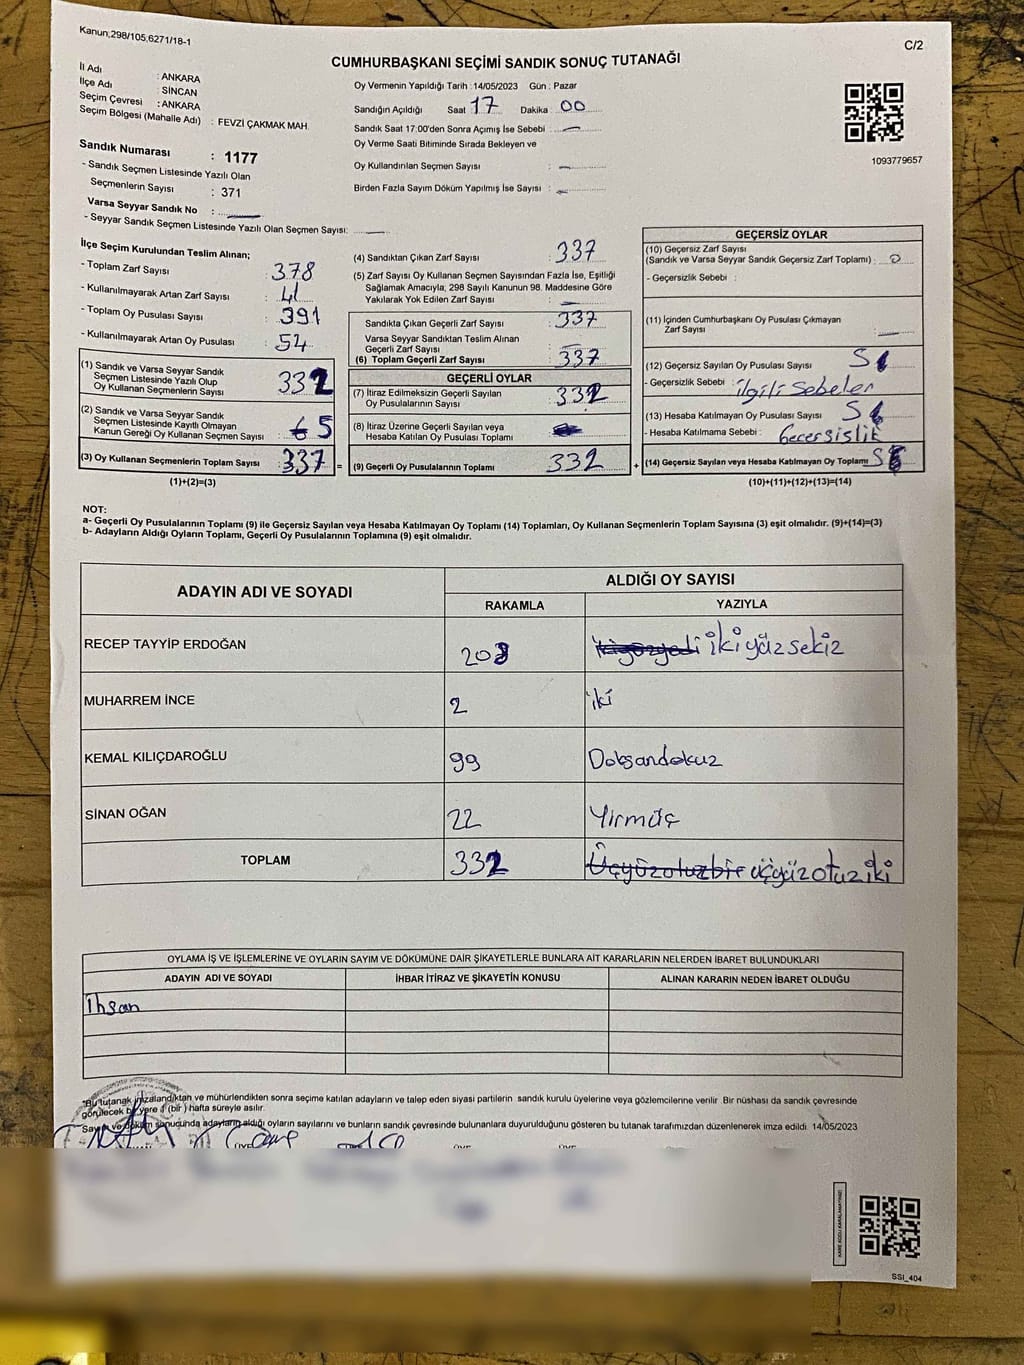 Kanun;298/105,6271/18-1
C/2
CUMHURBAŞKANI SEÇİMİ SANDIK SONUÇ TUTANAĞI
İl Adı : ANKARA
İlçe Adı : SİNCAN
Seçim Çevresi : ANKARA
Seçim Bölgesi (Mahalle Adı) : FEVZİ ÇAKMAK MAH.
Sandık Numarası : 1177
- Sandık Seçmen Listesinde Yazılı Olan
Seçmenlerin Sayısı : 371
Varsa Seyyar Sandık No :
- Seyyar Sandık Seçmen Listesinde Yazılı Olan Seçmen Sayısı:
Oy Vermenin Yapıldığı Tarih : 14/05/2023 Gün : Pazar
Sandığın Açıldığı Saat 17 Dakika : 00
Sandık Saat 17:00'den Sonra Açımış İse Sebebi :
Oy Verme Saati Bitiminde Sırada Bekleyen ve
Oy Kullandırılan Seçmen Sayısı :
Birden Fazla Sayım Döküm Yapılmış İse Sayısı :
1093779657
İlçe Seçim Kurulundan Teslim Alınan;
- Toplam Zarf Sayısı : 378
- Kullanılmayarak Artan Zarf Sayısı : 41
- Toplam Oy Pusulası Sayısı : 391
- Kullanılmayarak Artan Oy Pusulası : 54
(1) Sandık ve Varsa Seyyar Sandık
Seçmen Listesinde Yazılı Olup
Oy Kullanan Seçmenlerin Sayısı : 332
(2) Sandık ve Varsa Seyyar Sandık
Seçmen Listesinde Kayıtlı Olmayan
Kanun Gereği Oy Kullanan Seçmen Sayısı : 5
(3) Oy Kullanan Seçmenlerin Toplam Sayısı : 337 =
(1)+(2)=(3)
(4) Sandıktan Çıkan Zarf Sayısı : 337
(5) Zarf Sayısı Oy Kullanan Seçmen Sayısından Fazla İse, Eşitliği
Sağlamak Amacıyla; 298 Sayılı Kanunun 98. Maddesine Göre
Yakılarak Yok Edilen Zarf Sayısı :
Sandıkta Çıkan Geçerli Zarf Sayısı : 337
Varsa Seyyar Sandıktan Teslim Alınan
Geçerli Zarf Sayısı :
(6) Toplam Geçerli Zarf Sayısı : 337
GEÇERLİ OYLAR
(7) İtiraz Edilmeksizin Geçerli Sayılan
Oy Pusulalarının Sayısı : 332
(8) İtiraz Üzerine Geçerli Sayılan veya
Hesaba Katılan Oy Pusulası Toplamı :
(9) Geçerli Oy Pusulalarının Toplamı : 332 +
GEÇERSİZ OYLAR
(10) Geçersiz Zarf Sayısı
(Sandık ve Varsa Seyyar Sandık Geçersiz Zarf Toplamı) : 0
- Geçersizlik Sebebi :
(11) İçinden Cumhurbaşkanı Oy Pusulası Çıkmayan
Zarf Sayısı :
(12) Geçersiz Sayılan Oy Pusulası Sayısı : 5
- Geçersizlik Sebebi : ilgili Sebeler
(13) Hesaba Katılmayan Oy Pusulası Sayısı : 5
- Hesaba Katılmama Sebebi : Gecersislik
(14) Geçersiz Sayılan veya Hesaba Katılmayan Oy Toplamı : 5
(10)+(11)+(12)+(13)=(14)
NOT:
a- Geçerli Oy Pusulalarının Toplamı (9) ile Geçersiz Sayılan veya Hesaba Katılmayan Oy Toplamı (14) Toplamları, Oy Kullanan Seçmenlerin Toplam Sayısına (3) eşit olmalıdır. (9)+(14)=(3)
b- Adayların Aldığı Oyların Toplamı, Geçerli Oy Pusulalarının Toplamına (9) eşit olmalıdır.
ADAYIN ADI VE SOYADI
ALDIĞI OY SAYISI
RAKAMLA YAZIYLA
RECEP TAYYİP ERDOĞAN 208 ikiyüzyedi iki yüz sekiz
MUHARREM İNCE 2 iki
KEMAL KILIÇDAROĞLU 99 Doksandokuz
SİNAN OĞAN 22 Yirmüç
TOPLAM 332 Üçyüzotuzbir üçyüz otuz iki
OYLAMA İŞ VE İŞLEMLERİNE VE OYLARIN SAYIM VE DÖKÜMÜNE DAİR ŞİKAYETLERLE BUNLARA AİT KARARLARIN NELERDEN İBARET BULUNDUKLARI
ADAYIN ADI VE SOYADI İHBAR İTİRAZ VE ŞİKAYETİN KONUSU ALINAN KARARIN NEDEN İBARET OLDUĞU
İhsan
"Bu tutanak imzalandıktan ve mühürlendikten sonra seçime katılan adayların ve talep eden siyasi partilerin sandık kurulu üyelerine veya gözlemcilerine verilir. Bir nüshası da sandık çevresinde
görülecek bir yere 1 (bir) hafta süreyle asılır.
Sayım ve döküm sonucunda adayların aldığı oyların sayılarını ve bunların sandık çevresinde bulunanlara duyurulduğunu gösteren bu tutanak tarafımızdan düzenlenerek imza edildi. 14/05/2023
SSI_404